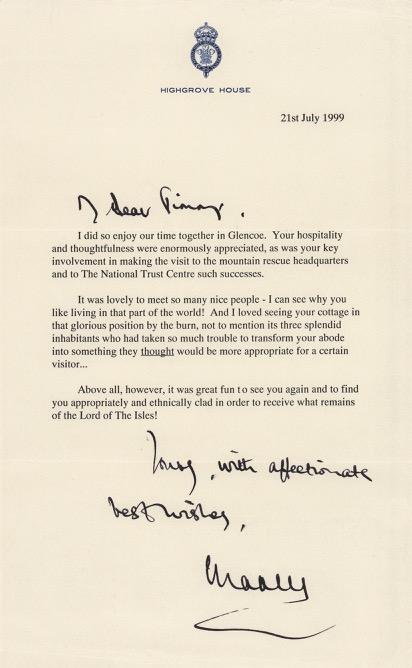 HIGHGROVE HOUSE
21st July 1999
dear
I did so enjoy our time together in Glencoe. Your hospitality
and thoughtfulness were enormously appreciated, as was your key
involvement in making the visit to the mountain rescue headquarters
and to The National Trust Centre such successes.
It was lovely to meet so many nice people - I can see why you
like living in that part of the world! And I loved seeing your cottage in
that glorious position by the burn, not to mention its three splendid
inhabitants who had taken so much trouble to transform your abode
into something they thought would be more appropriate for a certain
visitor...
Above all, however, it was great fun to see you again and to find
you appropriately and ethnically clad in order to receive what remains
of the Lord of The Isles!
Yours, with affectionate
best wishes,